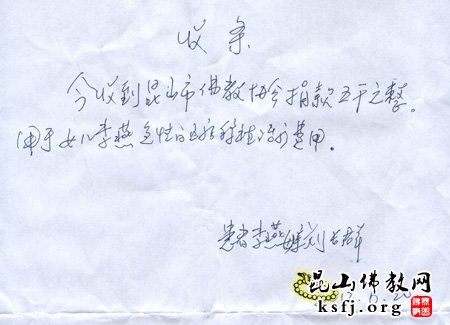 收条
今收到昆山市佛教协会捐款五千元整。
用于女儿李燕急性白血病移植治疗费用。
患者李燕母亲刘
昆山佛教网
ksfj.org